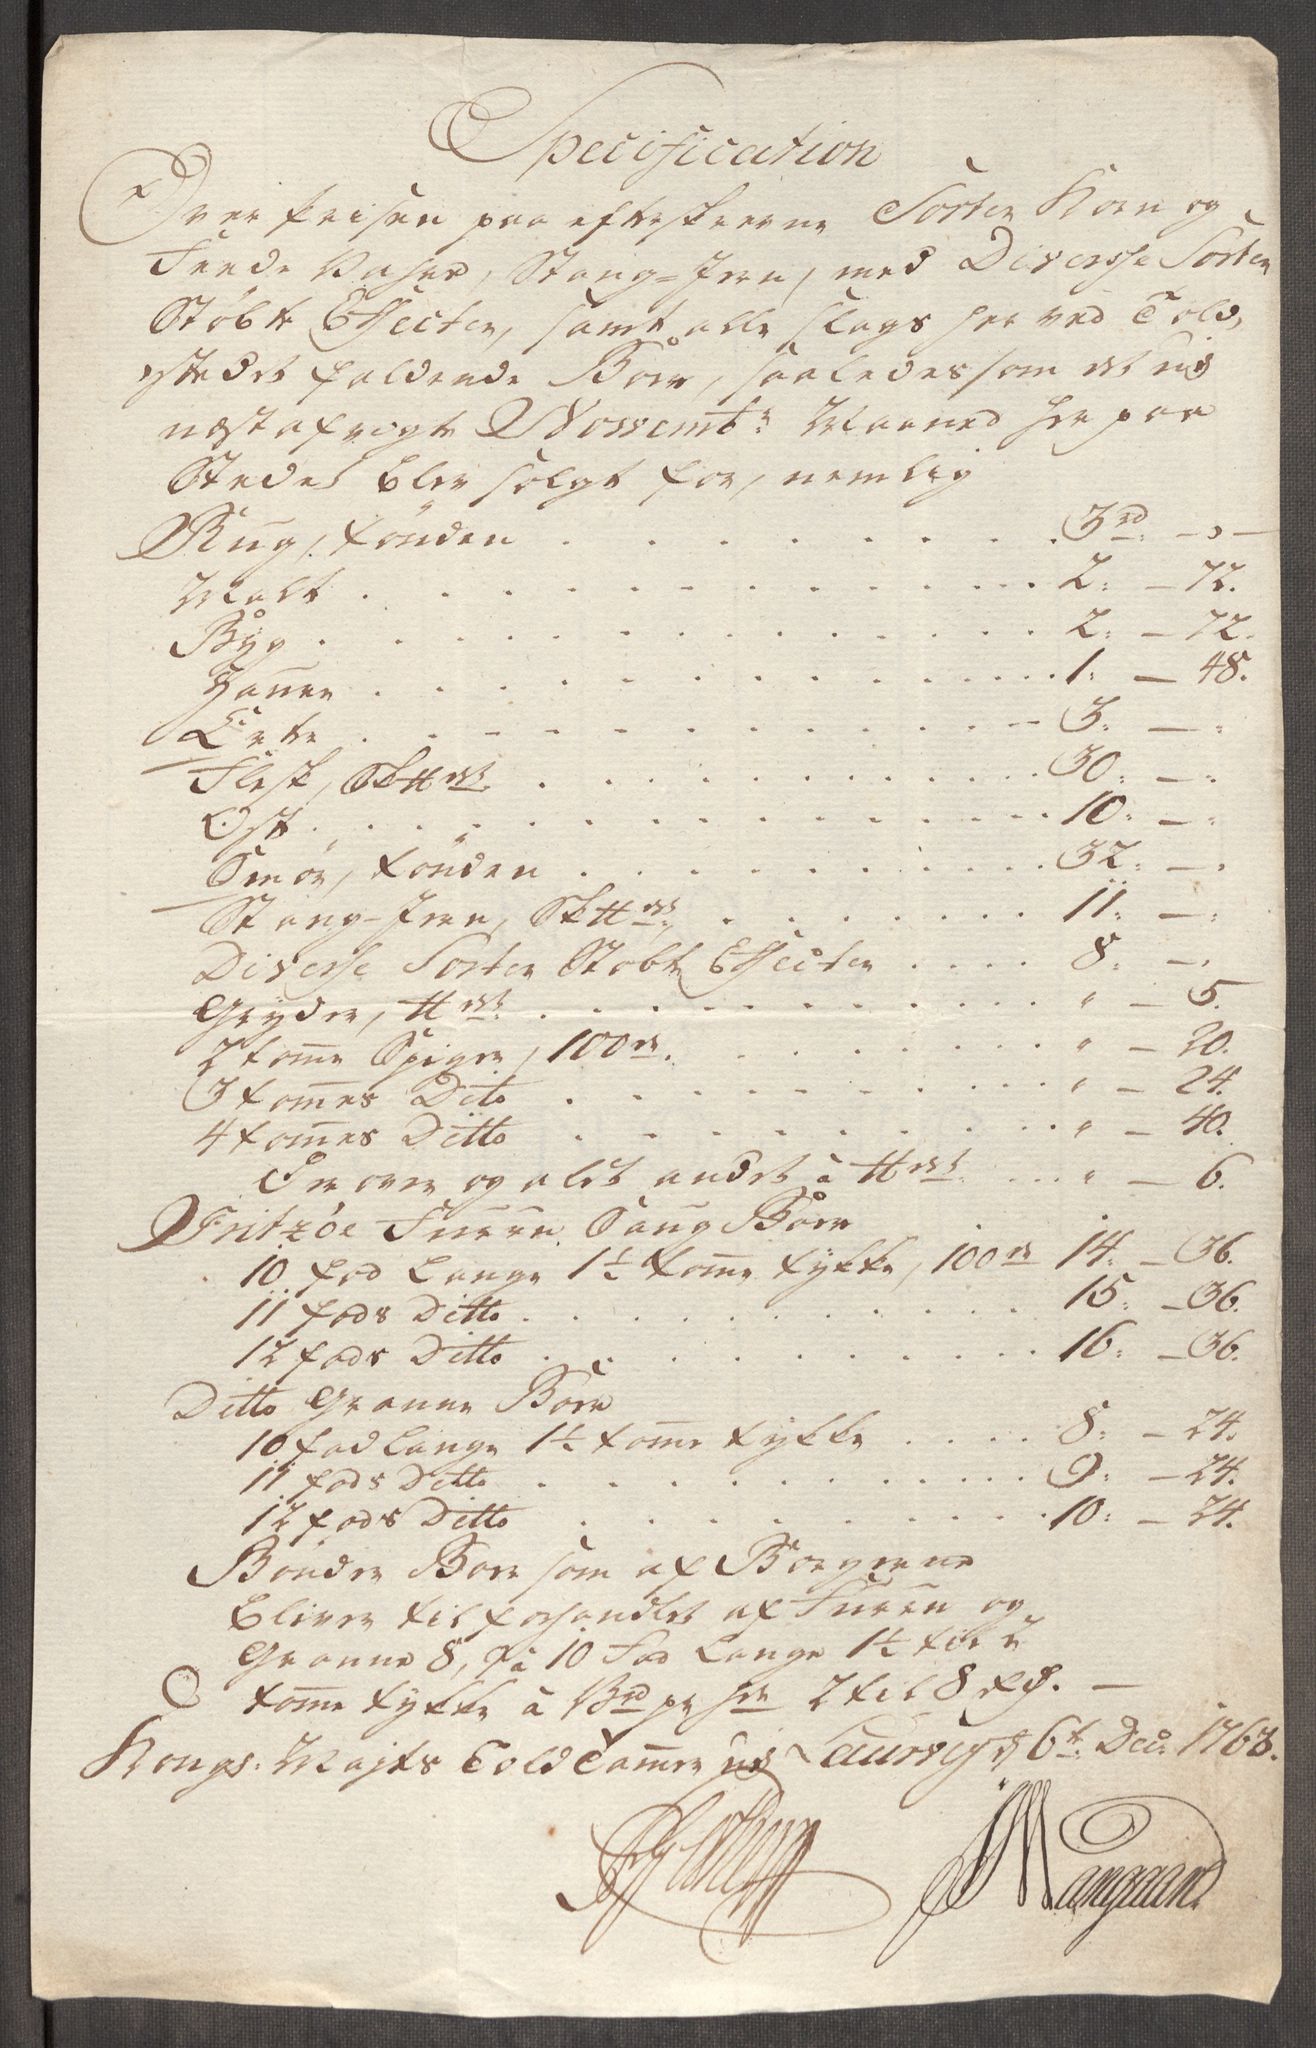 Specification
Over Prisen paa efterskrevne Sorter Korn og
Feede Vahrer, Stang-Jern, med Diverse Sorter
Støbte Effecter, samt alle slags her ved Told,
stedet faldende Bord, saaledes som det udj
næstafvigte Novemb:r Maaned her paa
Stedet blev solgt for, nemlig
Rug, tönden . . . 3 rd: - " -
Malt . . . 2: - 72.
Byg . . . 2: - 72.
Hafre . . . 1: - 48.
Erter . . . 3: - :
Flesk, Sk℔det . . . 30: - :
Ost . . . 10: - :
Smør, tönden . . . 32: - :
Stang-Jern, Sk℔det . . . 11: - :
Diverse Sorter Støbte Effecter . . . 8: - :
Gryder, ℔det . . . " - 5.
2 tome Spiger, 100de . . . " - 20.
3 tomes Dito . . . " - 24.
4 tomes Ditto . . . " - 40.
og alt andet à ℔det . . . " - 6.
Fritzöe Furru Saug Bord
10 fod Lange 1½ tome tykke, 100de 14: - 36.
11 fods Ditto . . . 15: - 36.
12 fods Ditto . . . 16: - 36.
Ditto Granne Bord
10 fod Lange 1½ tome tykke . . . 8: - 24.
11 fods Ditto . . . 9: - 24.
12 fods Ditto . . . 10: - 24.
Bönder Bord som af Borgerne
bliver tilforhandlet af Furru og
Granne 8, 9 à 10 Fod Lange 1½ til 2
tome tykke à 13 rd pr 2 til 8 rd. -
Kongs. Majts Told Camer ud Laurvig d 6t: Dec: 1768.